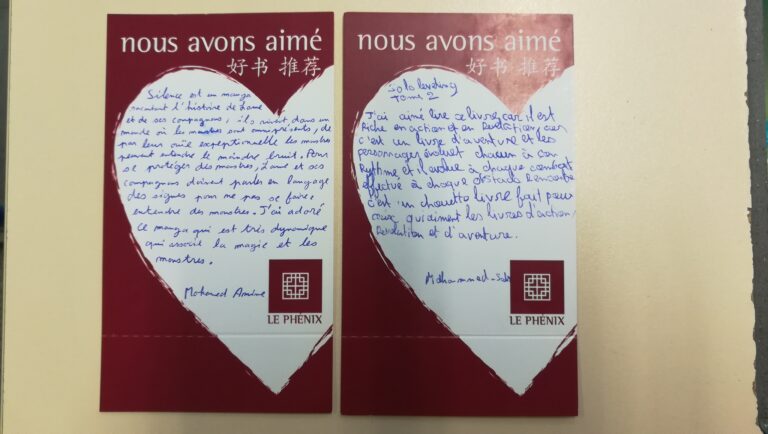 nous avons aimé
好书 推荐
Silence est un manga
racontant l'histoire de Lame
et de ses compagnons, ils vivent dans un
monde où les monstres sont omniprésents, de
par leur ouïe exceptionnelle les monstres
peuvent entendre le moindre bruit. Pour
se protéger des monstres, Lame et ses
compagnons doivent parler en langage
des signes pour ne pas se faire
entendre des monstres. J'ai adoré
ce manga qui est très dynamique
qui associt la magie et les
monstres.
Mohamed Amine
LE PHÉNIX
nous avons aimé
好书 推荐
Solo leveling
Tome 2
J'ai aimé lire ce livre car il est
Riche en action et en Révolution, car
c'est un livre d'aventure et les
personnages évoluet chacun à son
Rythme et il évolue à chaque combat
effectué à chaque obstacle Rencontré
c'est un chouette livre fait pour
ceux qui aiment les livres d'action,
Révolution et d'aventure.
Mohammed
LE PHÉNIX